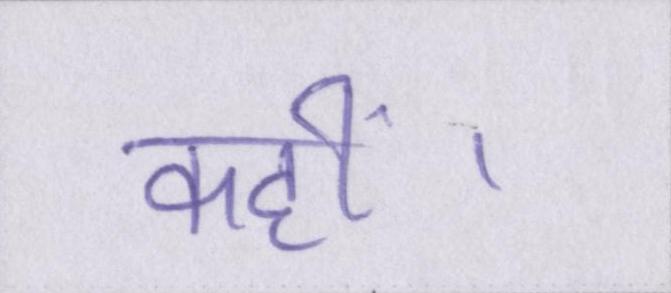 कहीं।